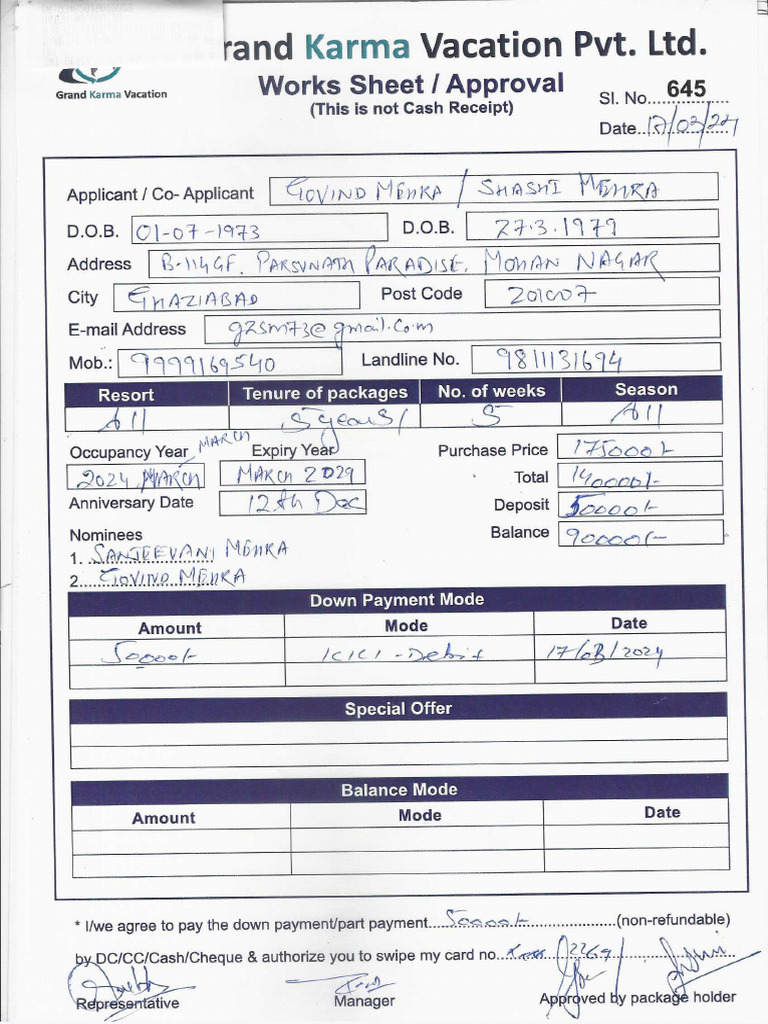 rand Karma Vacation Pvt. Ltd.
Grand Karma Vacation
Works Sheet / Approval
(This is not Cash Receipt)
Sl. No. 645
Date 17/03/24
Applicant / Co- Applicant GOVIND MEHRA / SHASHI MEHRA
D.O.B. 01-07-1973 D.O.B. 27.3.1979
Address B-114GF, PARSVNATH PARADISE, MOHAN NAGAR
City GHAZIABAD Post Code 201007
E-mail Address g2sm73@gmail.com
Mob.: 9999169540 Landline No. 9811131694
Resort Tenure of packages No. of weeks Season
All 5 years/ 5 All
Occupancy Year MARCH Expiry Year Purchase Price 175000/-
2024 MARCH MARCH 2029 Total 140000/-
Anniversary Date 12th Dec Deposit 50000/-
Nominees Balance 90000/-
1. SANJEEVANI MEHRA
2. GOVIND MEHRA
Down Payment Mode
Amount Mode Date
50000/- ICICI - Debit 17/03/2024
Special Offer
Balance Mode
Amount Mode Date
* I/we agree to pay the down payment/part payment 50000/- (non-refundable)
by DC/CC/Cash/Cheque & authorize you to swipe my card no. 2269
Representative Manager Approved by package holder